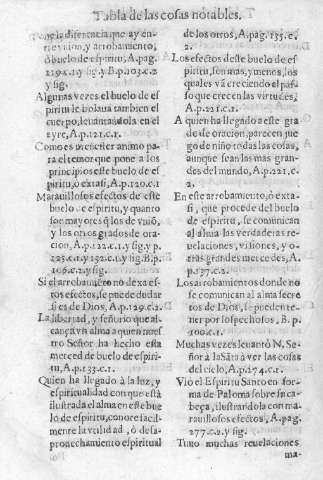 Tabla de las cosas notables.
ne la diferencia que ay en-
tre vnion, y arrobamiento,
ò buelo de espiritu, A.pag.
y sig. y B.p.103.c.2
y sig.
Algunas vezes el buelo de es
piritu le bolaua tambien el
cuerpo, leuantandola en el
ayre, A.p.121.c.1.
Como es menester animo pa-
ra el temor que pone a los
principios este buelo de es
piritu, ò extasi, A.p.120.c.1
Marauillosos efectos de este
buelo de espiritu, y quanto
son mayores q̃ los de vniõ,
y los otros grados de ora-
cion, A.p.122.c.1. y sig. y p.
225.c.1. y 232.c.1. y sig. B.p.
106.c.2. y sig.
Si el arrobamiẽto no dexa es-
tos efectos, se puede dudar
si es de Dios, A.p.129.c.2.
La libertad, y señorio que al-
cança vn alma a quien nues-
tro Señor ha hecho esta
merced de buelo de espiri-
tu, A.p.133.c.1.
Quien ha llegado à la luz, y
espiritualidad con que està
ilustrada el alma en este bue
lo de espiritu, conoce facil-
mente la vtilidad, ò desa-
prouechamiento espiritual
de los otros, A.pag.135.c.
2.
Los efectos deste buelo de es
piritu, son mas, y menos, los
quales vã creciendo al pas-
so que crecen las virtudes,
A.p.221.c.1.
A quien ha llegado a este gra
do de oracion, parecen jue
go de niño todas las cosas,
aunque sean las mas gran-
des del mundo, A.p.221.
c.2.
En este arrobamiento, ò exta-
si, que procede del buelo
de espiritu, se comunican
al alma las verdaderas re-
uelaciones, visiones, y o-
tras grandes mercedes, A.
p.137.c.2.
Los arrobamientos donde no
se comunican al alma secre
tos de Dios, se pueden te-
ner por sospechosos, B.p.
100.c.1.
Muchas vezes leuantò N. Se-
ñor à la Sãta à ver las cosas
del cielo, A.p.274.c.1.
Viò el Espiritu Santo en for-
ma de Paloma sobre su ca-
beça, ilustrandola con ma-
rauillosos efectos, A.pag.
277.c.2. y sig.
Tuuo muchas reuelaciones
ma-